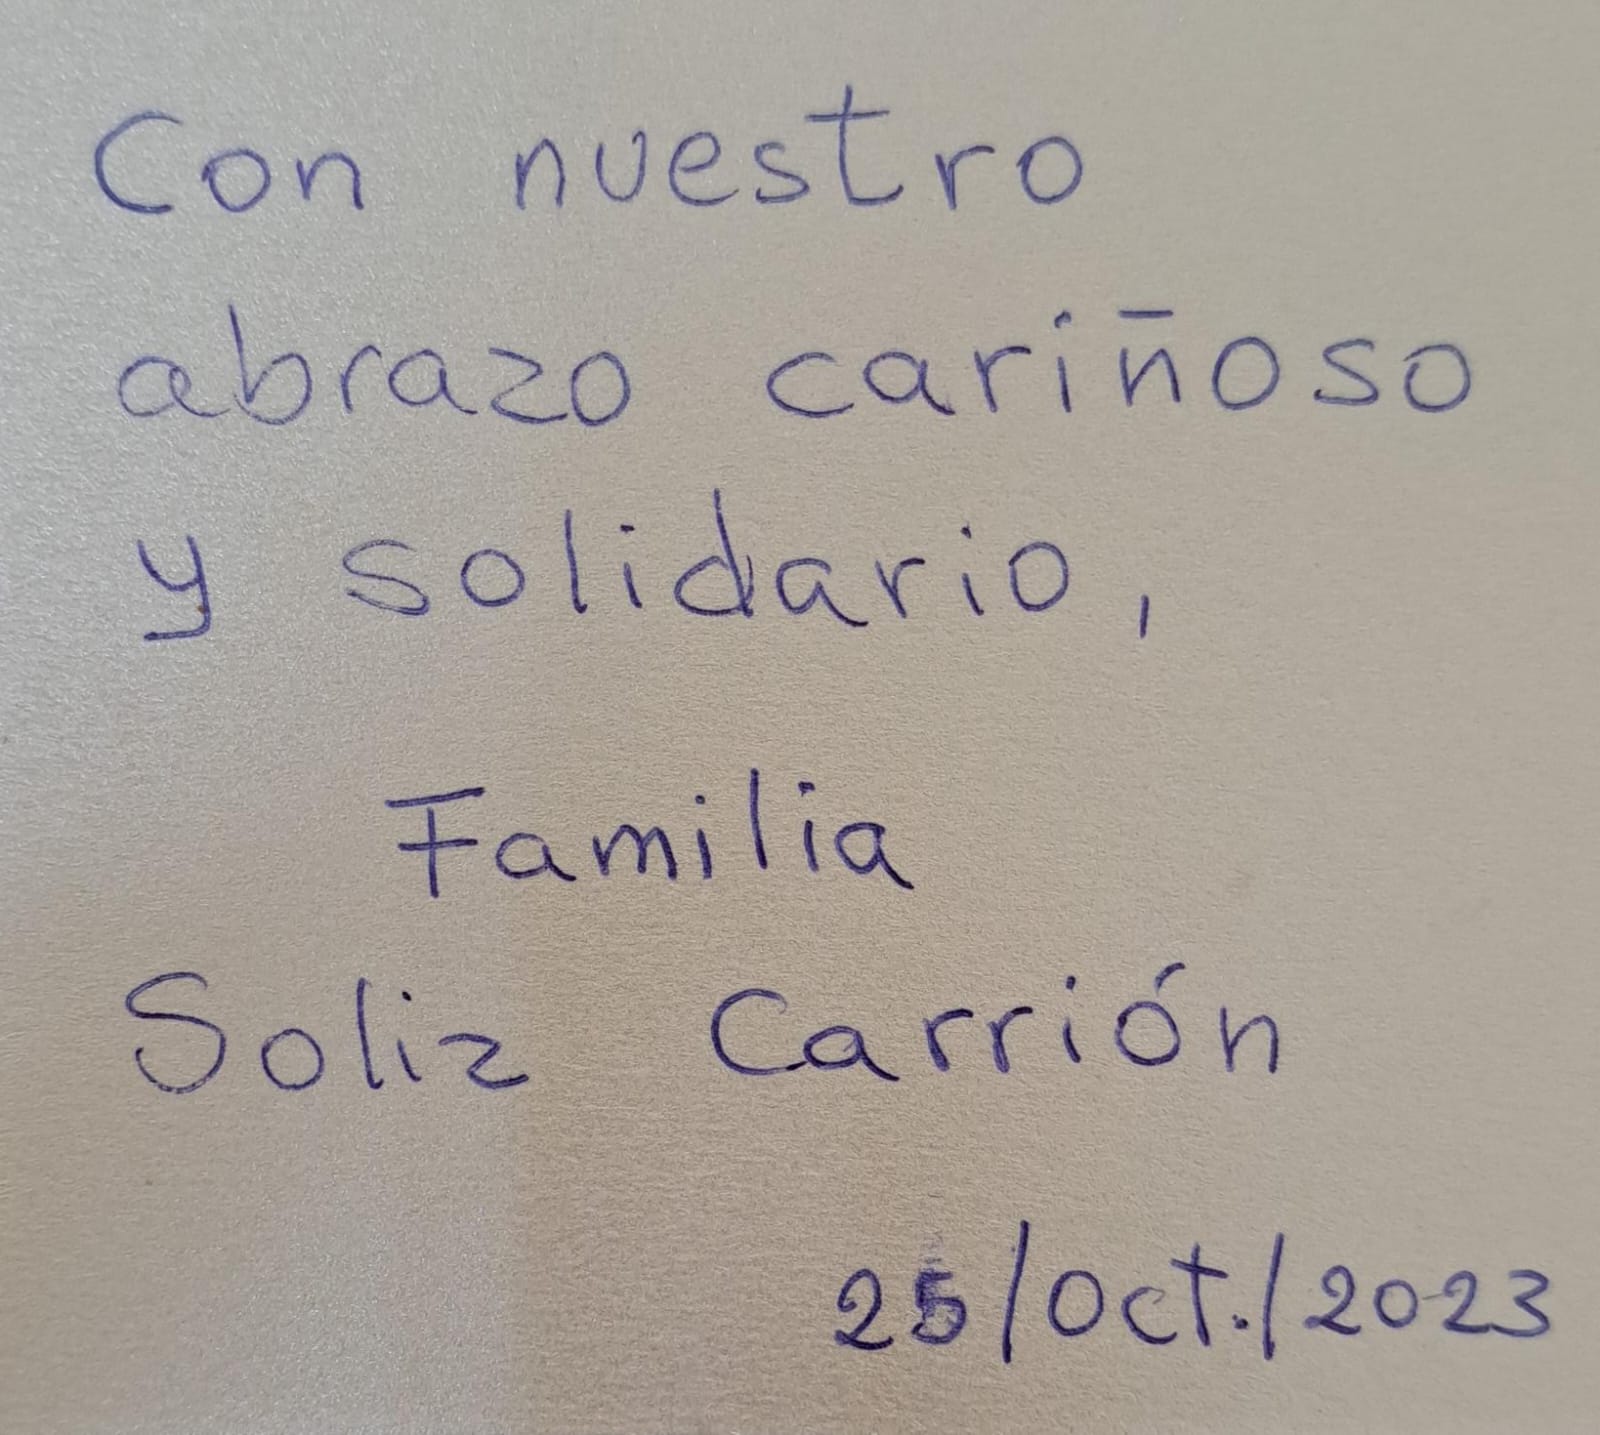 Con nuestro
abrazo cariñoso
y solidario,
Familia
Soliz Carrión
25/Oct./2023